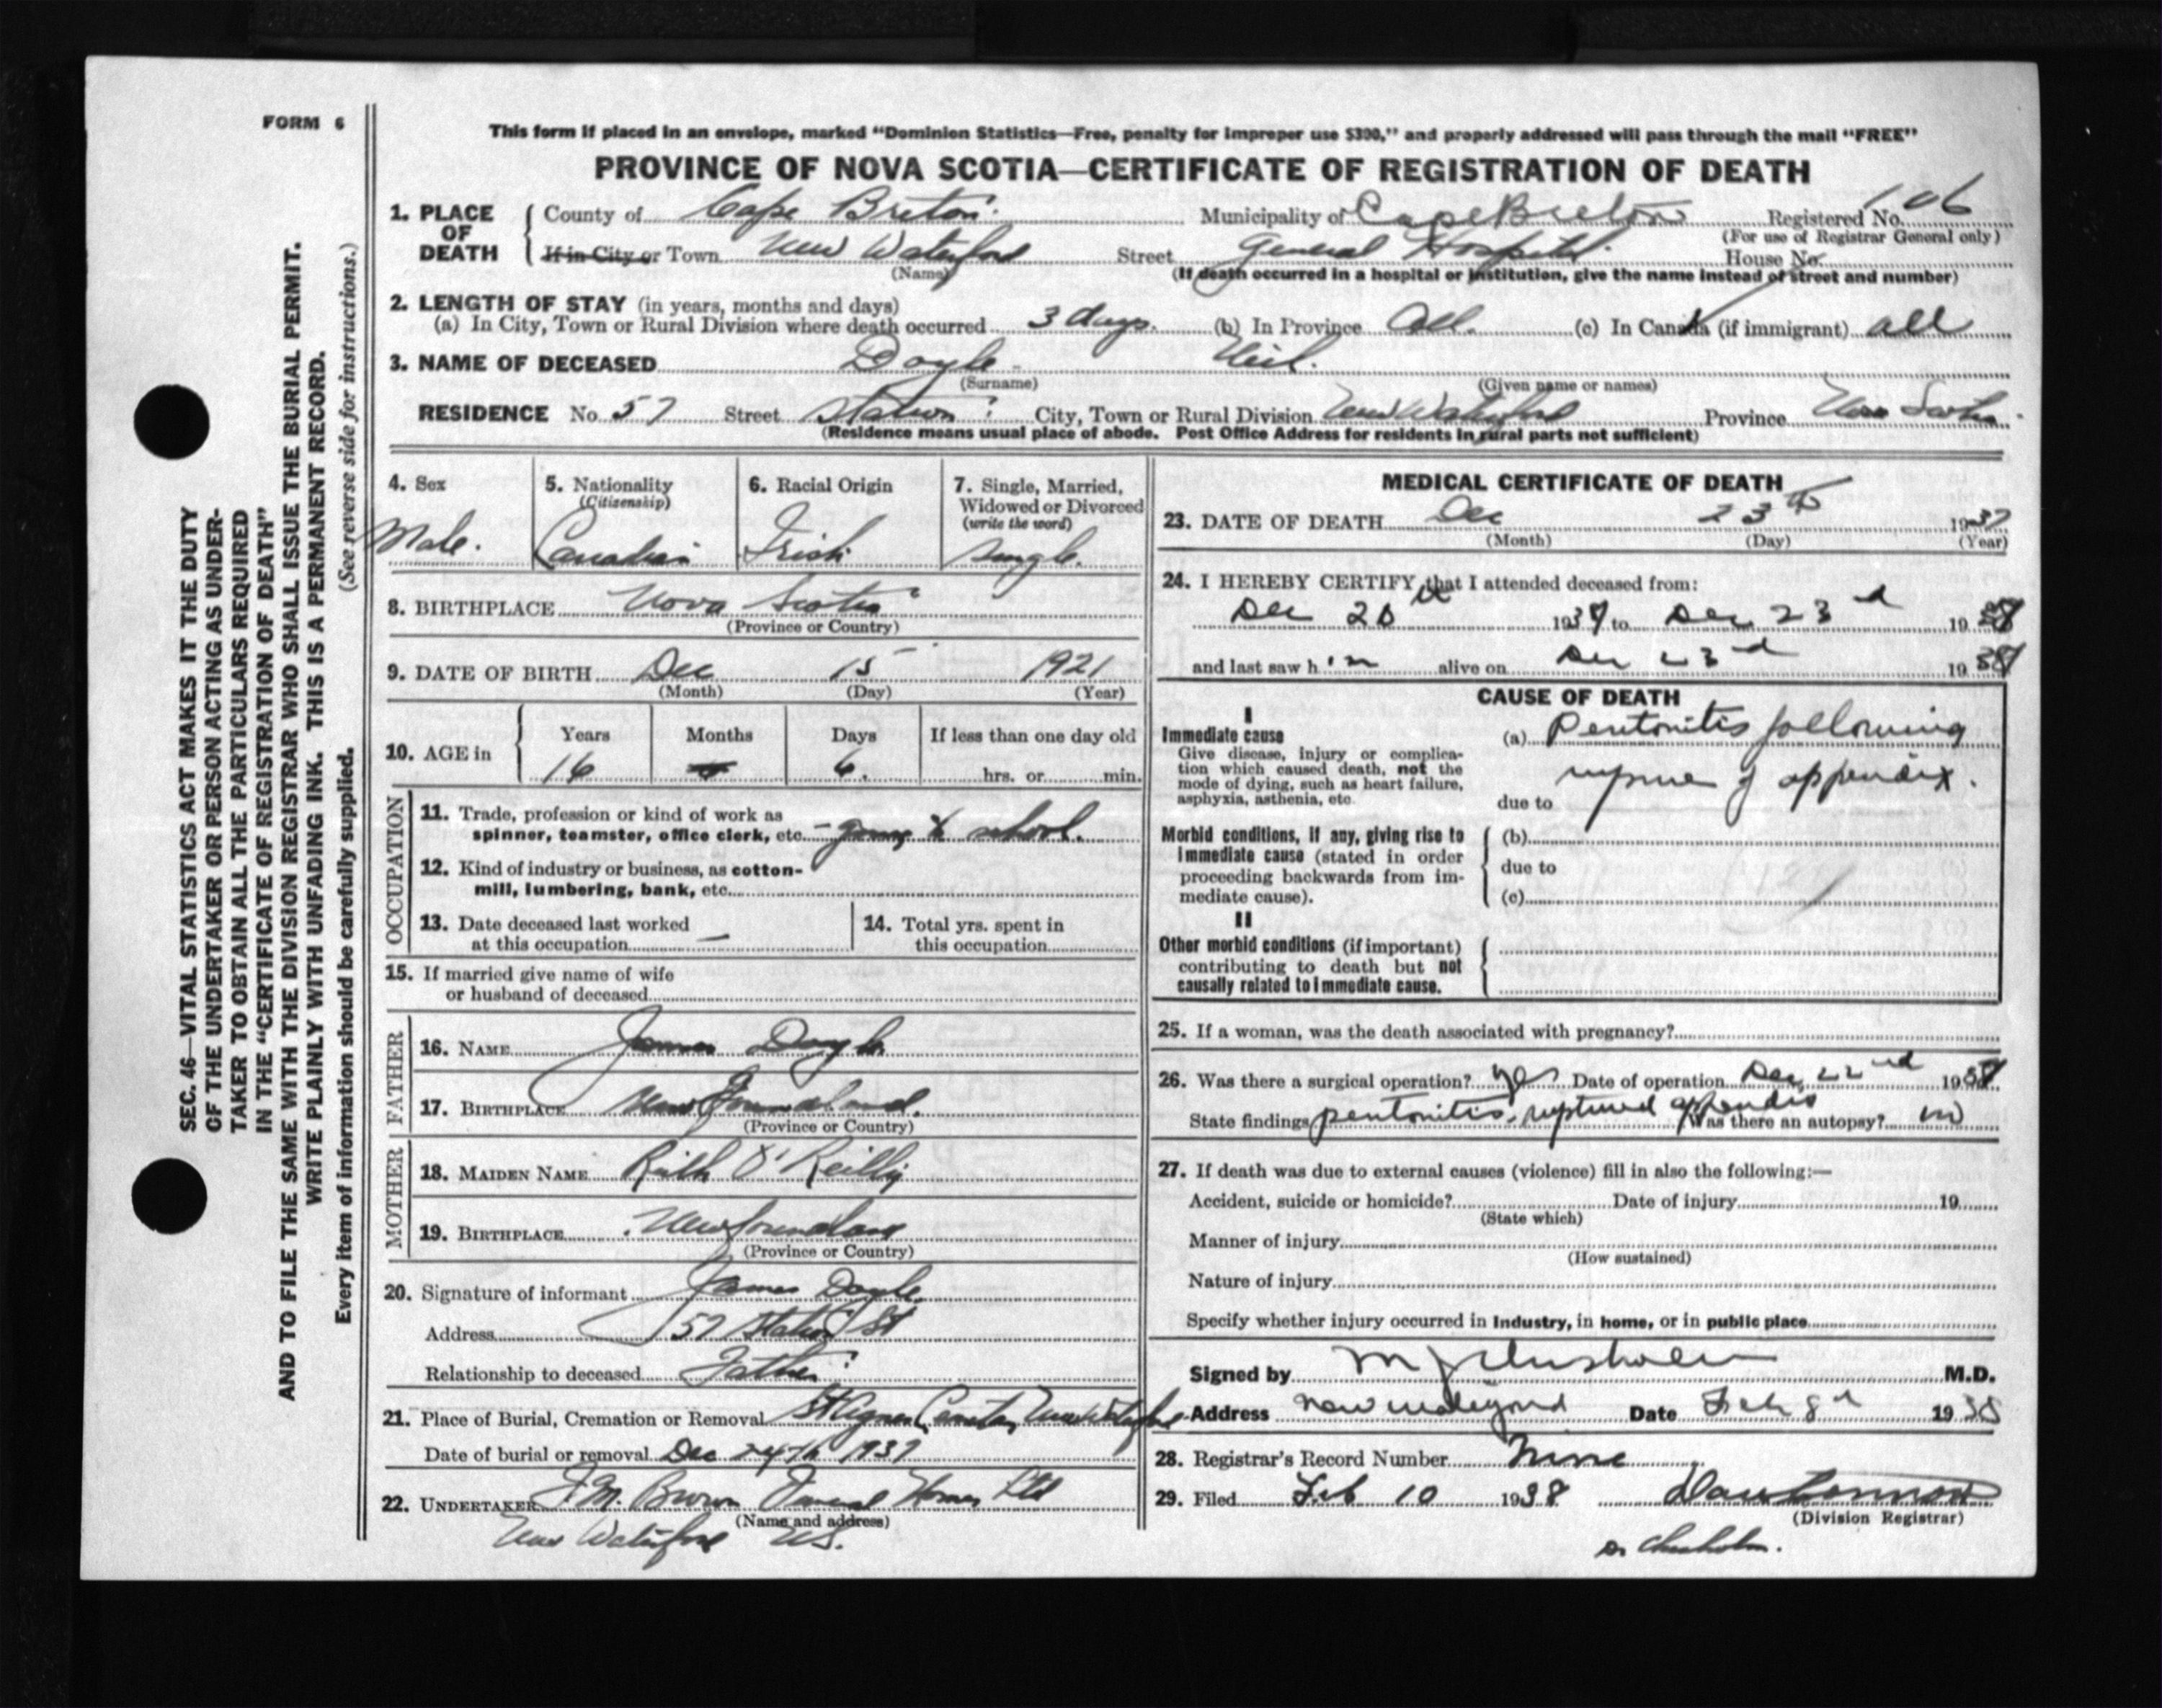 FORM 6
This form if placed in an envelope, marked "Dominion Statistics—Free, penalty for improper use $300," and properly addressed will pass through the mail "FREE"
PROVINCE OF NOVA SCOTIA—CERTIFICATE OF REGISTRATION OF DEATH
1. PLACE OF DEATH County of Cape Breton Municipality of Cape Breton Registered No. 106
(For use of Registrar General only)
If in City or Town New Waterford Street General Hospital House No.
(Name) (If death occurred in a hospital or institution, give the name instead of street and number)
2. LENGTH OF STAY (in years, months and days)
(a) In City, Town or Rural Division where death occurred 3 days. (b) In Province All. (c) In Canada (if immigrant) all
3. NAME OF DECEASED Doyle - Neil.
(Surname) (Given name or names)
RESIDENCE No. 57 Street Station City, Town or Rural Division New Waterford Province Nova Scotia
(Residence means usual place of abode. Post Office Address for residents in rural parts not sufficient)
4. Sex 5. Nationality 6. Racial Origin 7. Single, Married,
(Citizenship) Widowed or Divorced
(write the word)
Male. Canadian Irish Single.
8. BIRTHPLACE Nova Scotia
(Province or Country)
9. DATE OF BIRTH Dec 15 1921
(Month) (Day) (Year)
10. AGE in Years Months Days If less than one day old
16 6. hrs. or min.
OCCUPATION
11. Trade, profession or kind of work as
spinner, teamster, office clerk, etc. - going to school.
12. Kind of industry or business, as cotton-
mill, lumbering, bank, etc.
13. Date deceased last worked 14. Total yrs. spent in
at this occupation — this occupation
15. If married give name of wife
or husband of deceased
FATHER
16. NAME James Doyle
17. BIRTHPLACE Newfoundland.
(Province or Country)
MOTHER
18. MAIDEN NAME Ruth O'Reilly
19. BIRTHPLACE Newfoundland
(Province or Country)
20. Signature of informant James Doyle
Address 57 Station St
Relationship to deceased Father
21. Place of Burial, Cremation or Removal St Agnes New Waterford
Date of burial or removal Dec 24th 1937
22. UNDERTAKER Brown Funeral Home Ltd
(Name and address)
New Waterford NS.
MEDICAL CERTIFICATE OF DEATH
23. DATE OF DEATH Dec 23th 1937
(Month) (Day) (Year)
24. I HEREBY CERTIFY that I attended deceased from:
Dec 20th 1937 to Dec 23rd 1937
and last saw him alive on Dec 23rd 1937
CAUSE OF DEATH
I
Immediate cause (a) Peritonitis following
Give disease, injury or complica-
tion which caused death, not the rupture of appendix.
mode of dying, such as heart failure,
asphyxia, asthenia, etc. due to
Morbid conditions, if any, giving rise to (b)
immediate cause (stated in order due to
proceeding backwards from im-
mediate cause). (c)
II
Other morbid conditions (if important)
contributing to death but not
causally related to immediate cause.
25. If a woman, was the death associated with pregnancy?
26. Was there a surgical operation? yes Date of operation Dec 22nd 1937
State findings peritonitis, ruptured appendix Was there an autopsy? no
27. If death was due to external causes (violence) fill in also the following:—
Accident, suicide or homicide? Date of injury 19
(State which)
Manner of injury
(How sustained)
Nature of injury
Specify whether injury occurred in Industry, in home, or in public place
Signed by M J Chisholm M.D.
Address New Waterford Date Feb 8th 1938
28. Registrar's Record Number Nine
29. Filed Feb 10 1938
(Division Registrar)
Dr Chisholm.
SEC. 46—VITAL STATISTICS ACT MAKES IT THE DUTY
OF THE UNDERTAKER OR PERSON ACTING AS UNDER-
TAKER TO OBTAIN ALL THE PARTICULARS REQUIRED
IN THE "CERTIFICATE OF REGISTRATION OF DEATH"
AND TO FILE THE SAME WITH THE DIVISION REGISTRAR WHO SHALL ISSUE THE BURIAL PERMIT.
WRITE PLAINLY WITH UNFADING INK. THIS IS A PERMANENT RECORD.
Every item of information should be carefully supplied. (See reverse side for instructions.)